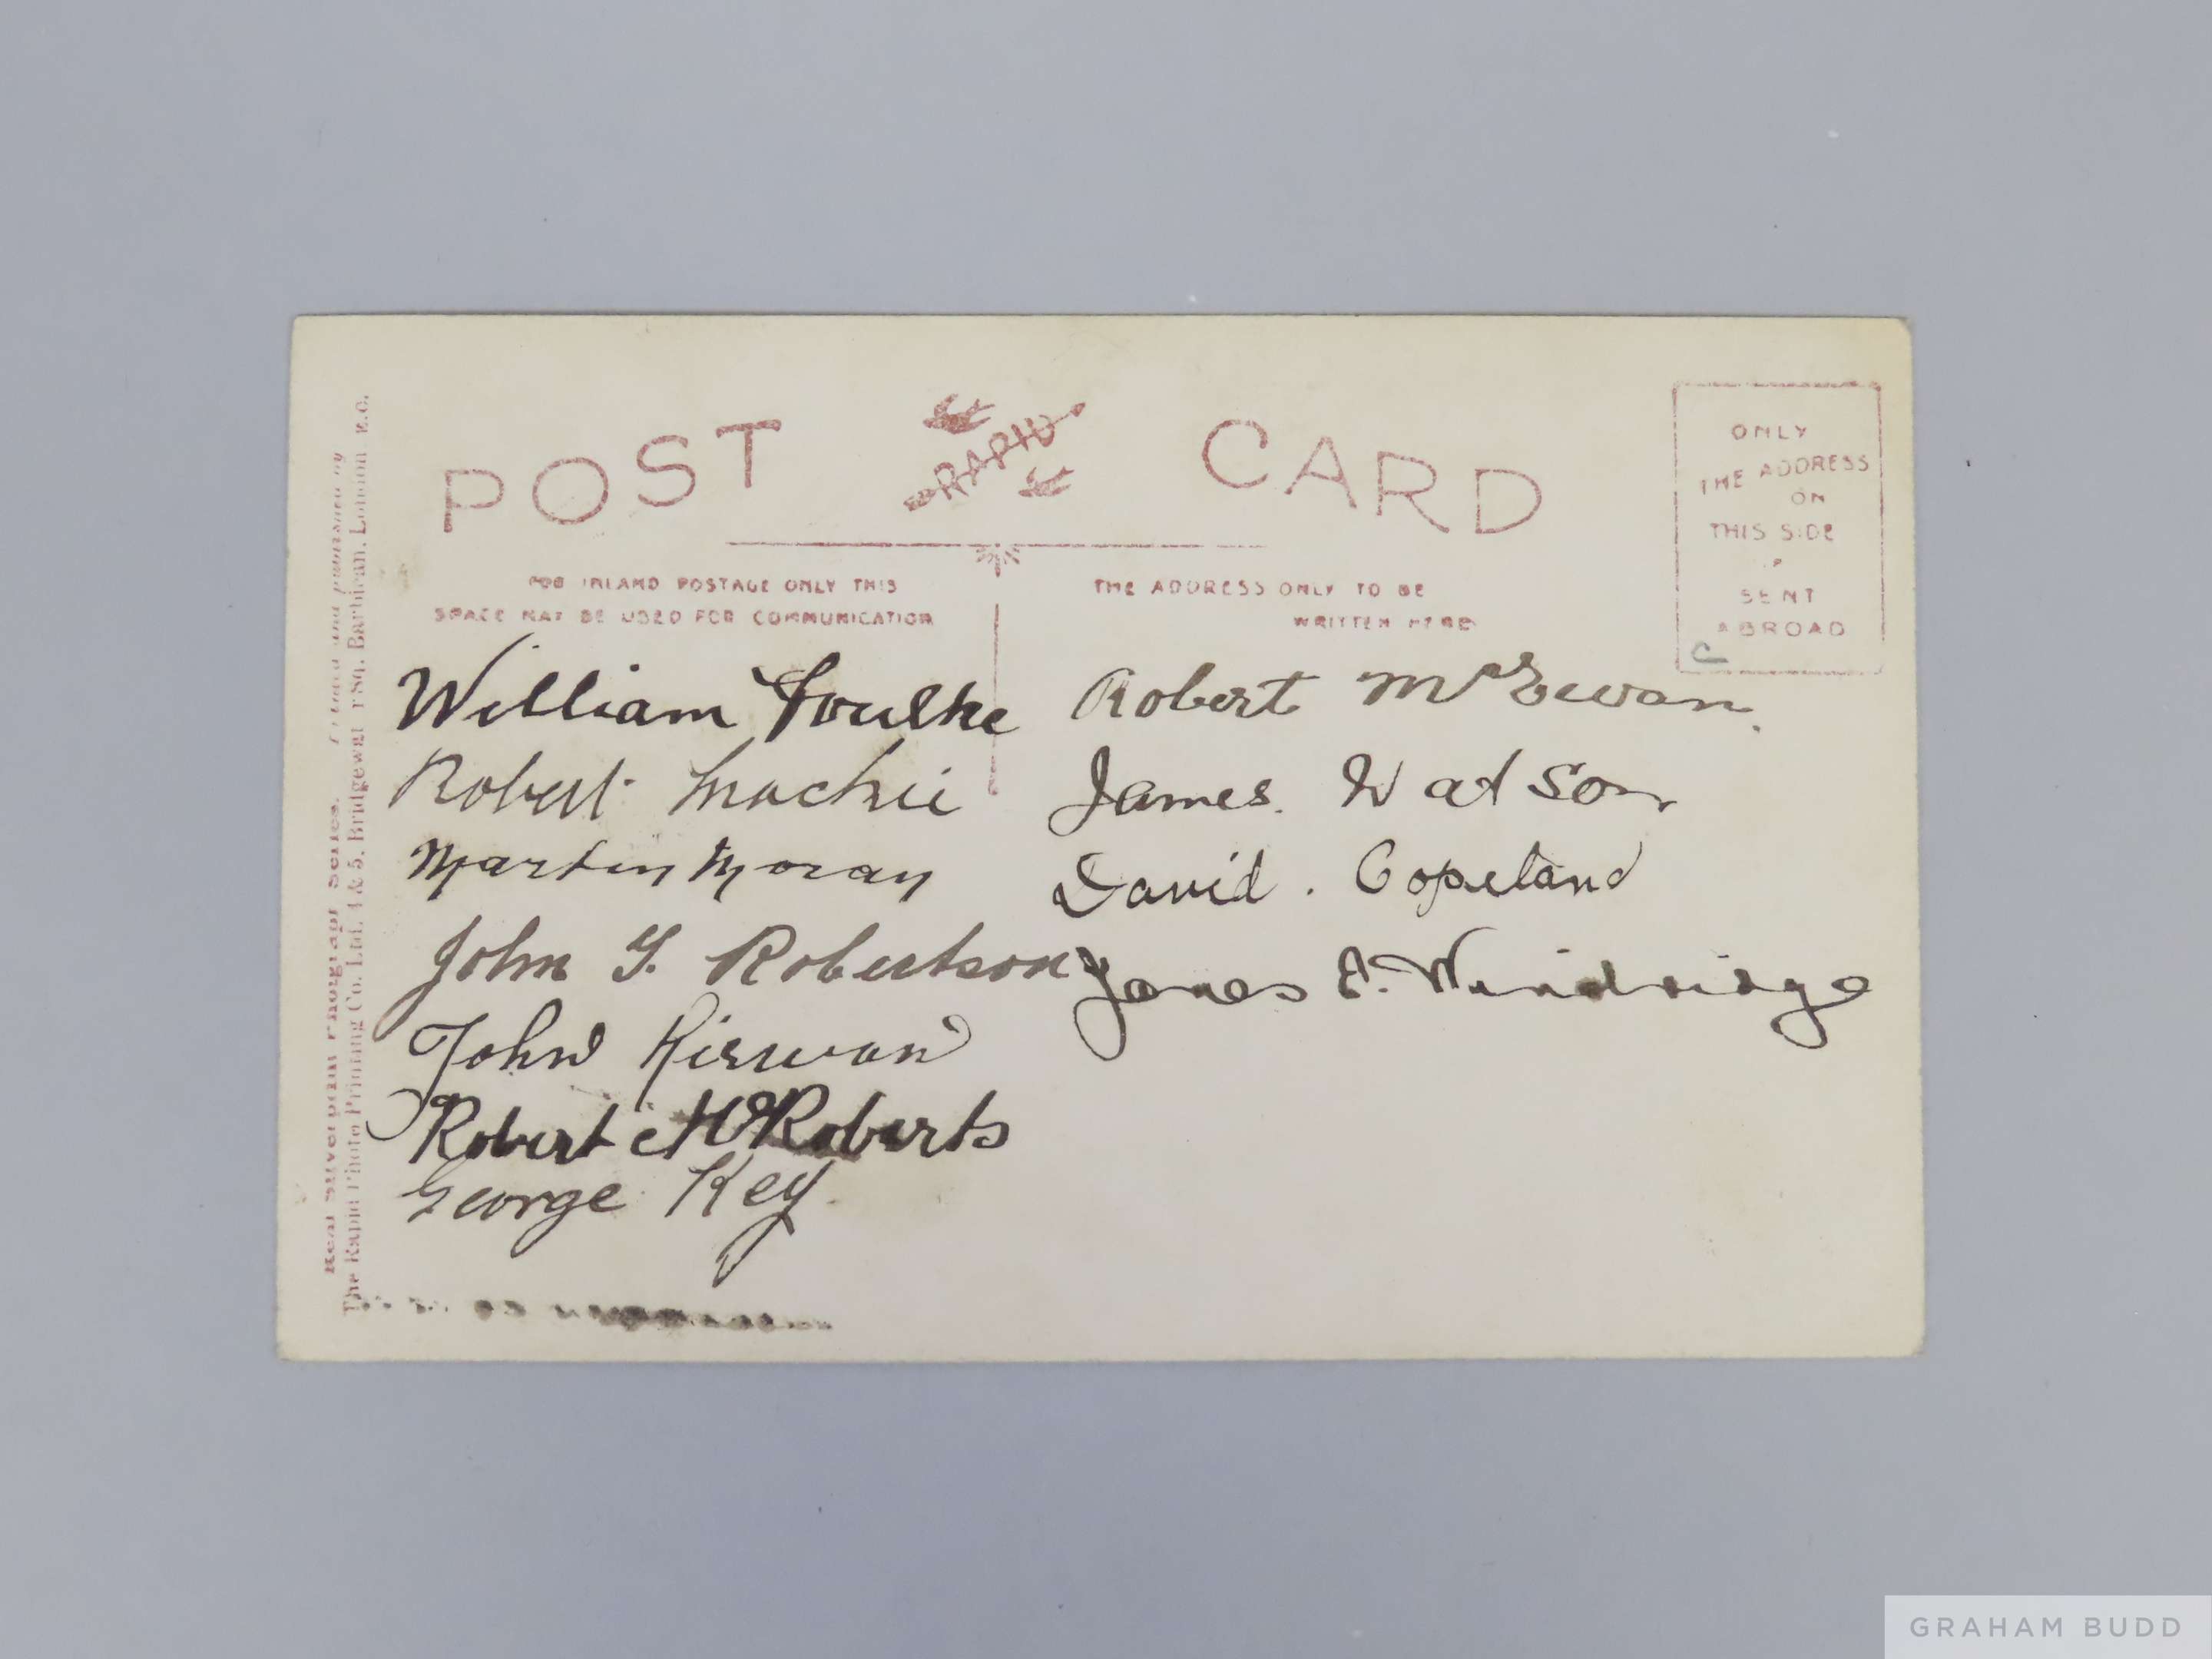 POST RAPID CARD
ONLY
THE ADDRESS
ON
THIS SIDE
IF
SENT
ABROAD
FOR INLAND POSTAGE ONLY THIS
SPACE MAY BE USED FOR COMMUNICATION
THE ADDRESS ONLY TO BE
WRITTEN HERE
William Foulke
Robert Mackie
Martin Moran
John T. Robertson
John Kirwan
Robert McRoberts
George Key
Robert McEwan.
James. Watson
David. Copeland
James E. Windridge
Real Silverprint Photograph Series. Printed and published by
The Rapid Photo Printing Co. Ltd. 4 & 5, Bridgewater Sq. Barbican, London E.C.
GRAHAM BUDD